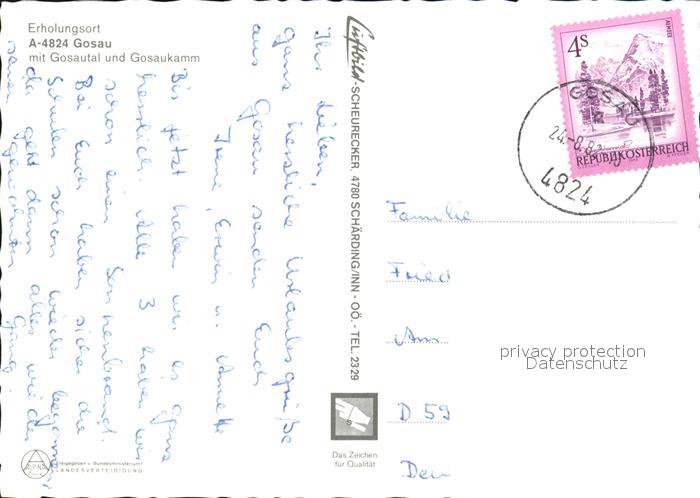 Erholungsort
A-4824 Gosau
mit Gosautal und Gosaukamm
Ihr Lieben,
ganz herzliche Urlaubsgrüße
aus Gosau senden Euch
Irene, Erwin u. Annette
Bis jetzt haben wir es ganz
herrlich. Alle 3 haben wir
schon einen Sonnenbrand.
Bei Euch haben sicher die
Schulen schon wieder begonnen
da geht dann alles wieder
seinen gewohnten Gang
Luftbild-SCHEURECKER 4780 SCHÄRDING/INN - OÖ. - TEL. 2329
4S
ALMSEE
REPUBLIK ÖSTERREICH
GOSAU
24.-8.8
4824
Familie
Fried
Am
D 59
privacy protection
Datenschutz
Das Zeichen
für Qualität
Freigegeben v. Bundesministerium f.
LANDESVERTEIDIGUNG